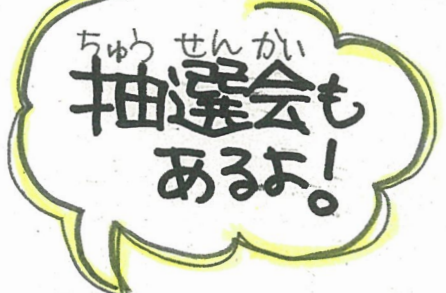 ちゅう せん かい
抽選会も
あるよ!